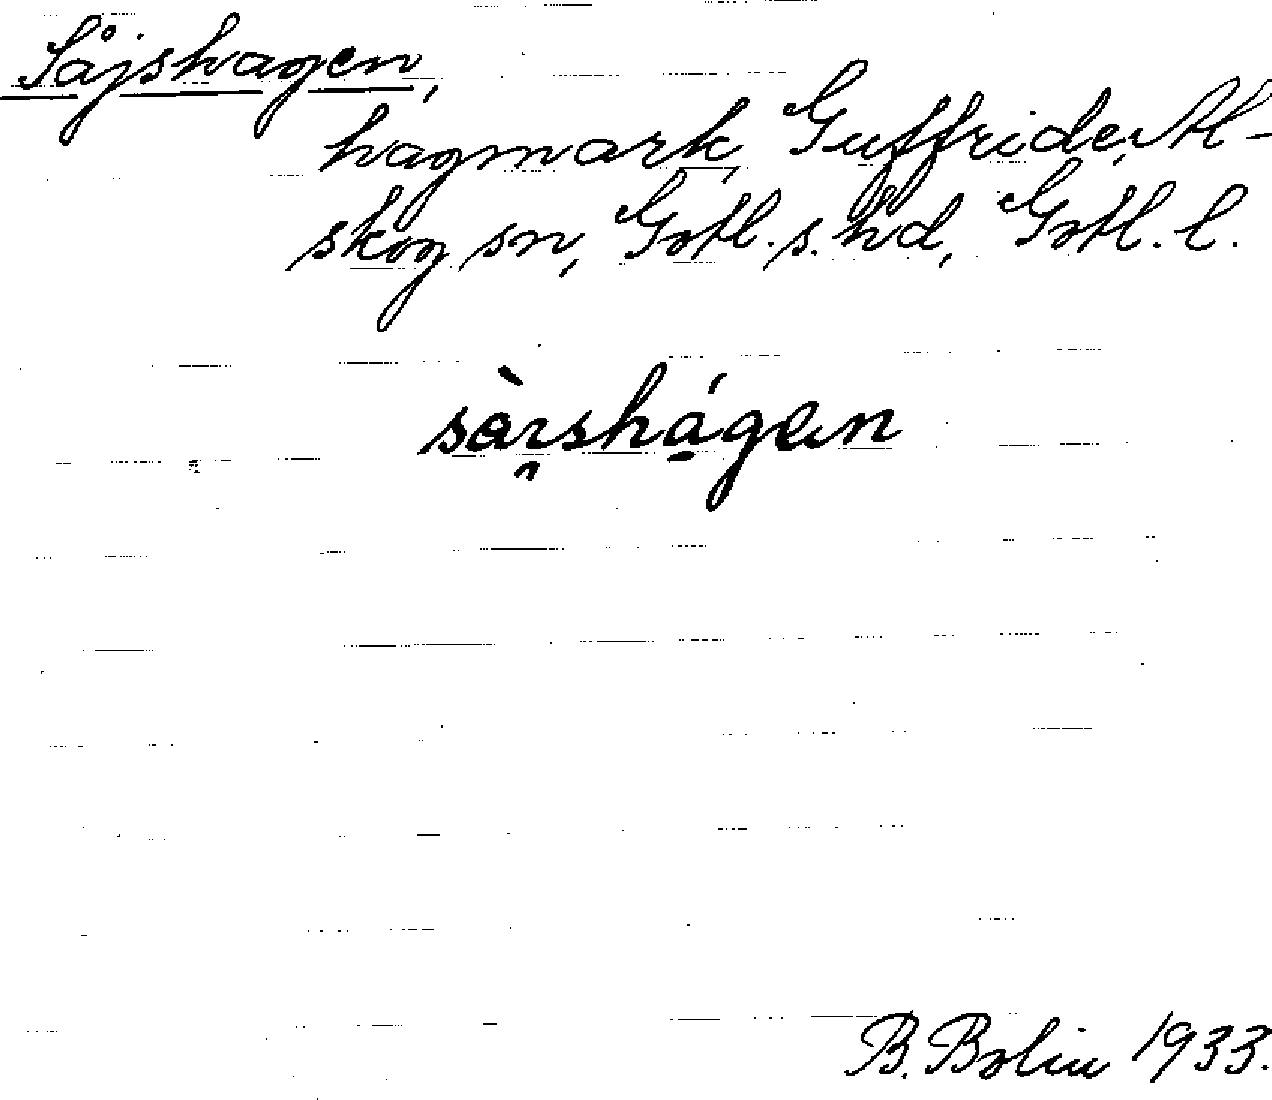 Såjshagen,
hagmark, Guffride, Al-
skog sn, Gotl. s. hd, Gotl. l.
sàı̯shá̠gen
B. Bolin 1933.